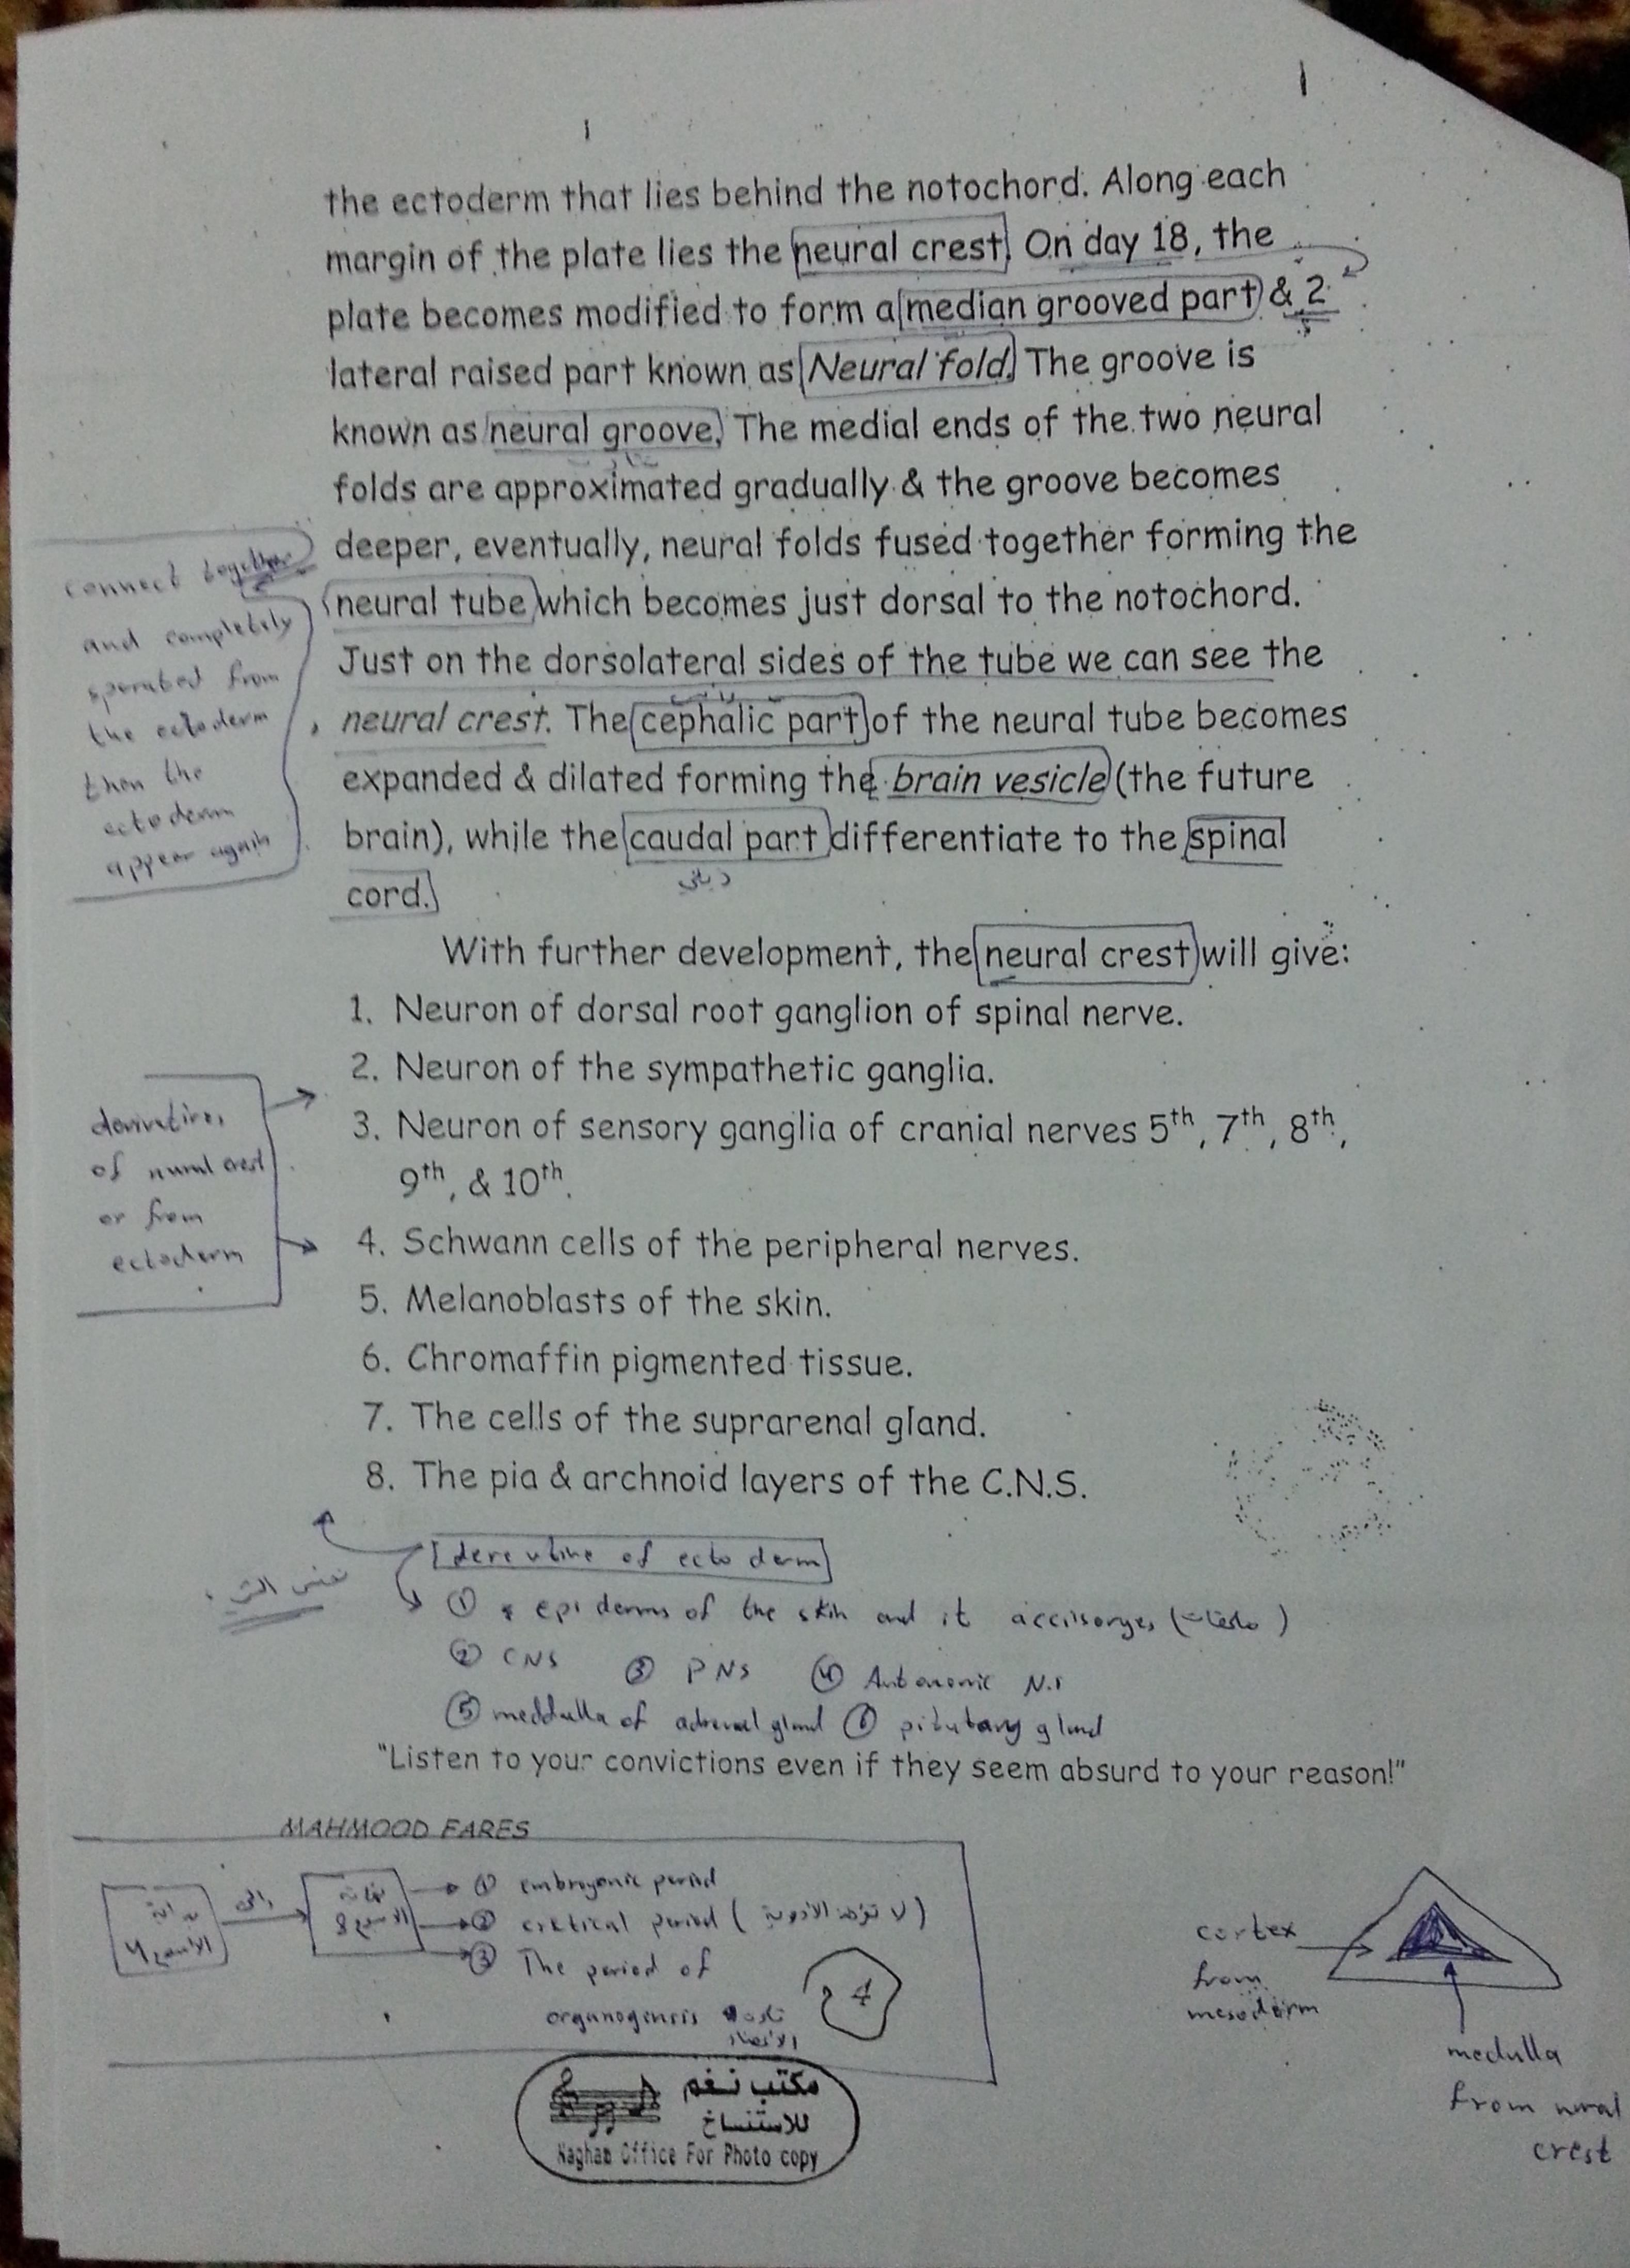 the ectoderm that lies behind the notochord. Along each
margin of the plate lies the neural crest. On day 18, the
plate becomes modified to form a median grooved part & 2
lateral raised part known as Neural fold. The groove is
known as neural groove. The medial ends of the two neural
folds are approximated gradually & the groove becomes
deeper, eventually, neural folds fused together forming the
neural tube which becomes just dorsal to the notochord.
Just on the dorsolateral sides of the tube we can see the
neural crest. The cephalic part of the neural tube becomes
expanded & dilated forming the brain vesicle (the future
brain), while the caudal part differentiate to the spinal
cord.
connect together
and completely
sperated from
the ectoderm
then the
ectoderm
appear again
With further development, the neural crest will give:
1. Neuron of dorsal root ganglion of spinal nerve.
2. Neuron of the sympathetic ganglia.
3. Neuron of sensory ganglia of cranial nerves 5th, 7th, 8th,
9th, & 10th.
4. Schwann cells of the peripheral nerves.
5. Melanoblasts of the skin.
6. Chromaffin pigmented tissue.
7. The cells of the suprarenal gland.
8. The pia & archnoid layers of the C.N.S.
derivatives
of nural crest
or from
ectoderm
of ecto derm
① epi dermis of the skin and it
② CNS ③ PNS ④ Autonomic N.S
⑤ meddulla of adrenal gland ⑥ pitutary gland
"Listen to your convictions even if they seem absurd to your reason!"
MAHMOOD FARES
① embryonic period
② cretical period (
③ The period of
organogenesis
4
cortex
from
mesoderm
medulla
from nural
crest
مكتب نغم
للاستنساخ
Nagham Office For Photo copy